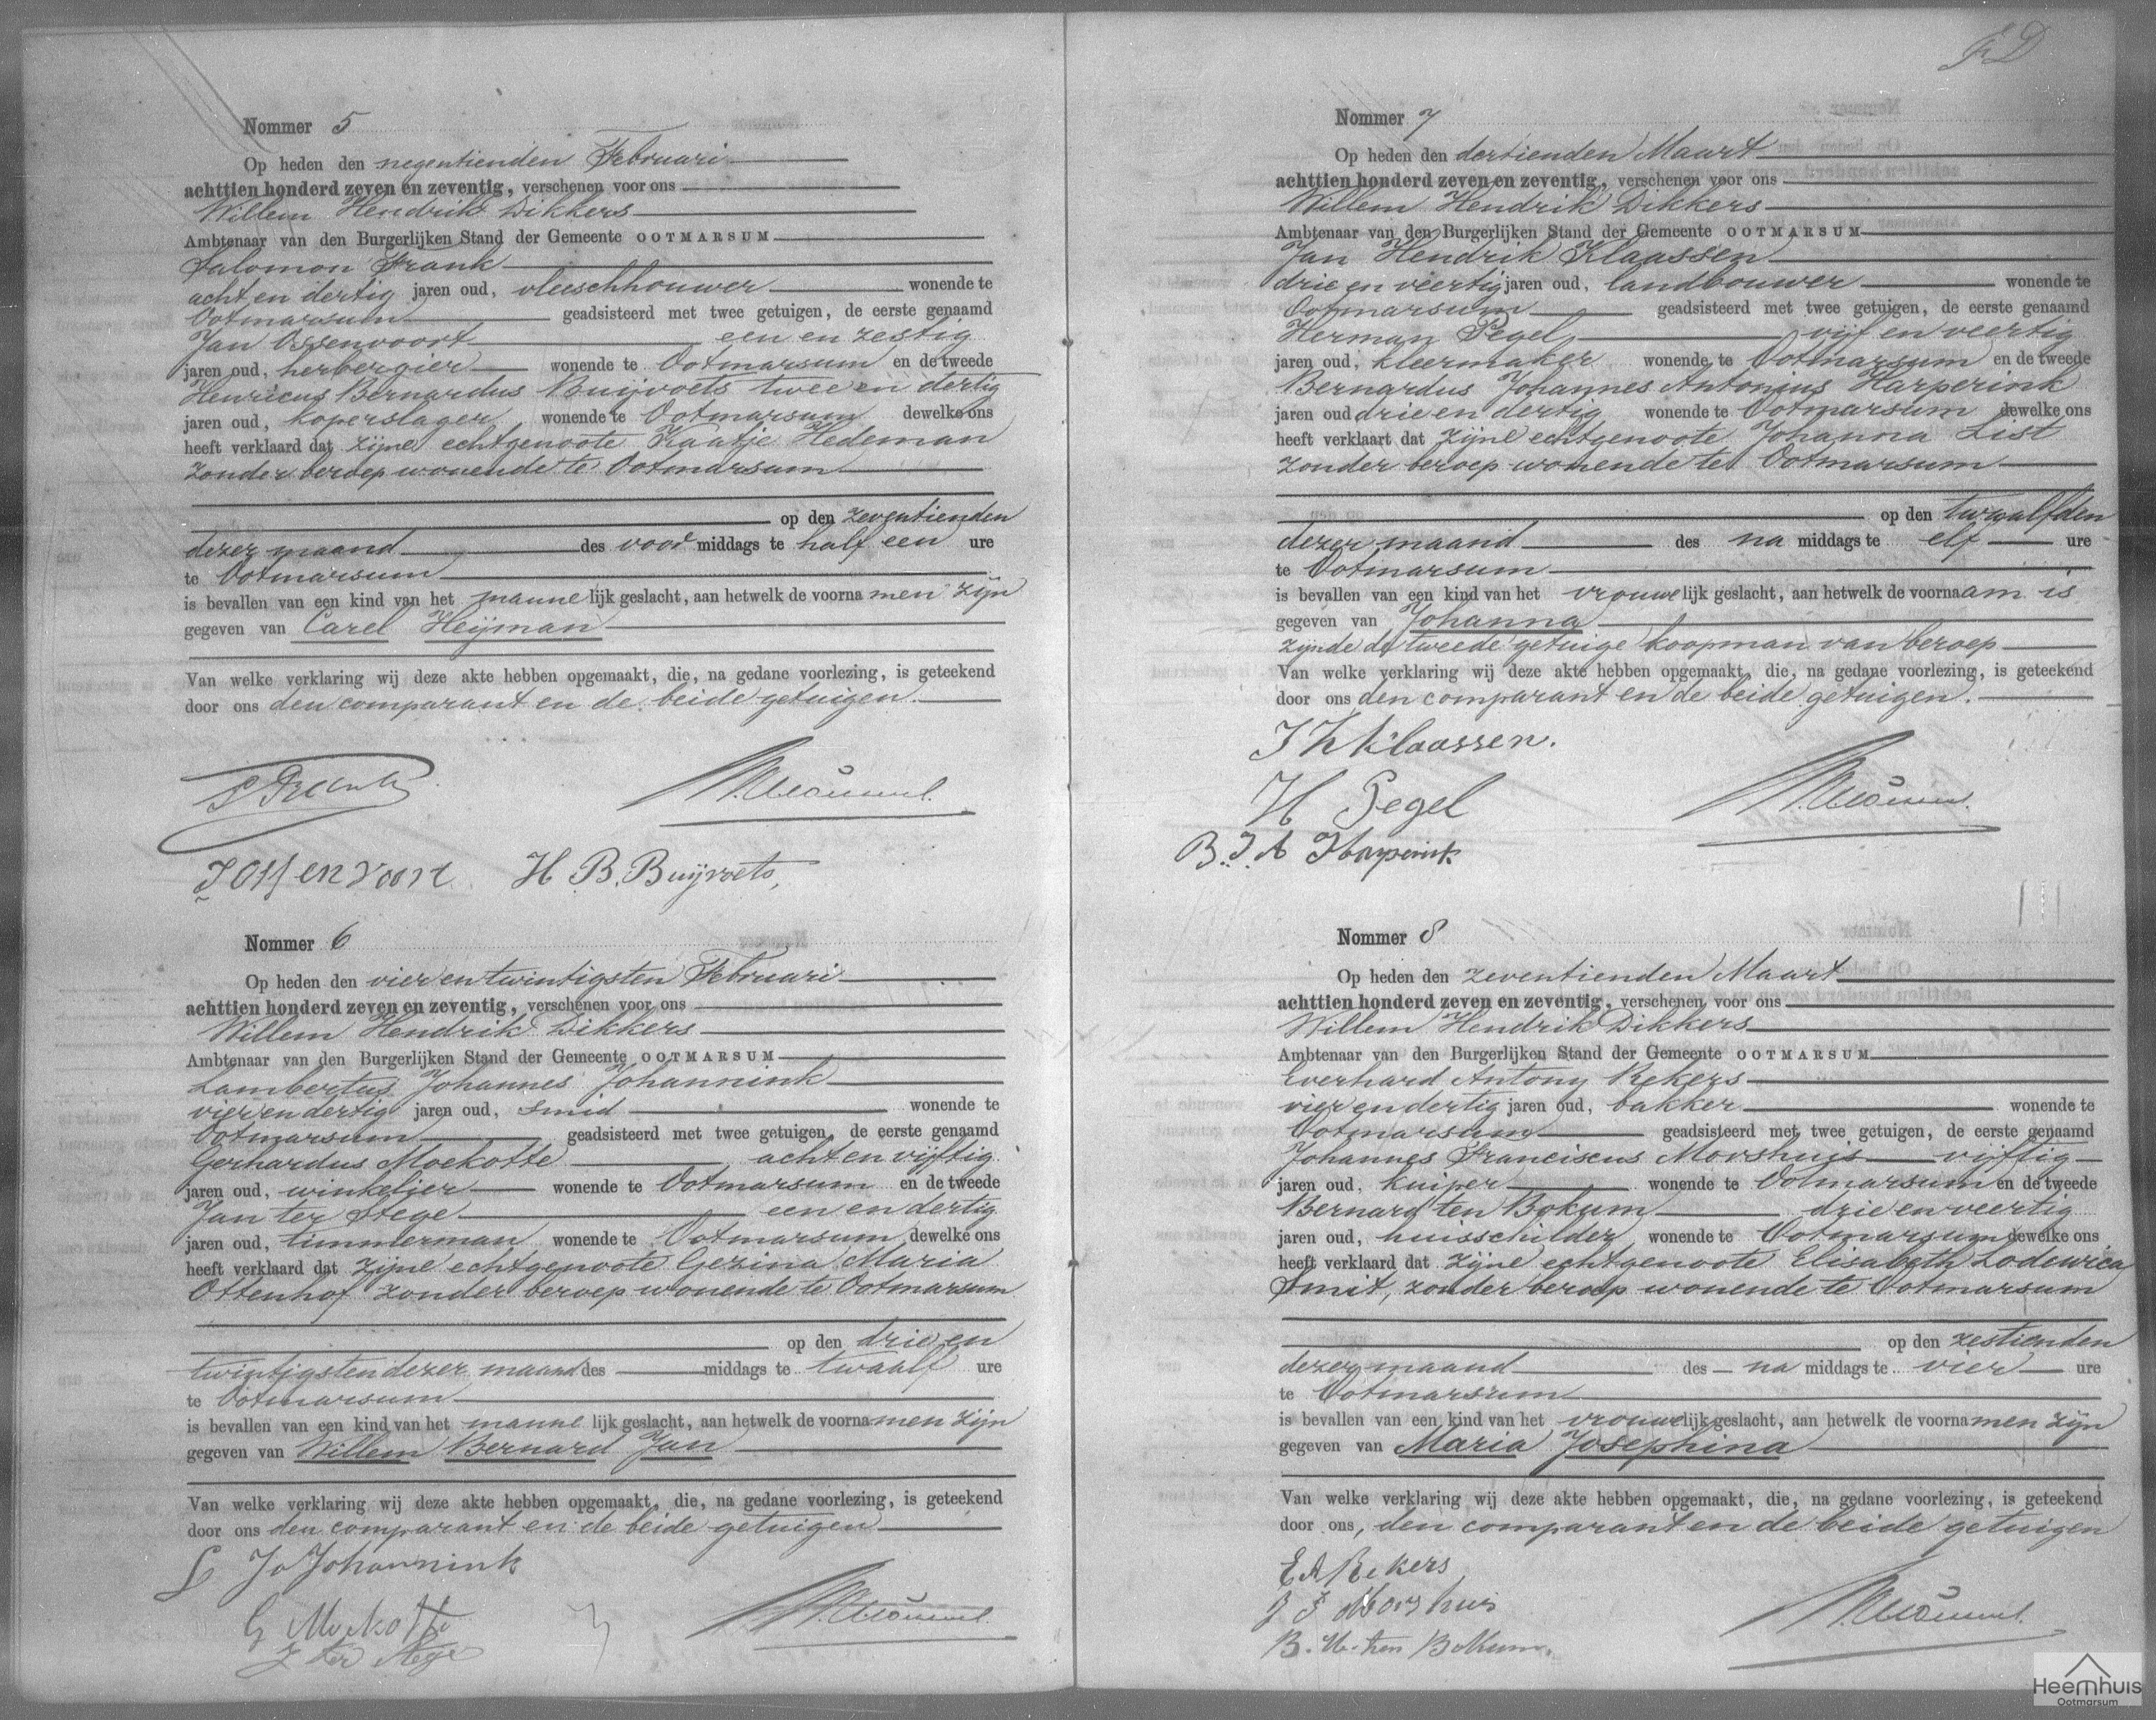 Nommer 5
Op heden den negentienden Februari
achttien honderd zeven en zeventig, verschenen voor ons
Willem Hendrik Dikkers
Ambtenaar van den Burgerlijken Stand der Gemeente OOTMARSUM
Salomon Frank
acht en dertig jaren oud, vleeschhouwer wonende te
Ootmarsum geadsisteerd met twee getuigen, de eerste genaamd
Jan Ossenvoort een en zestig
jaren oud, herbergier wonende te Ootmarsum en de tweede
Henricus Bernardus Buijvoets twee en dertig
jaren oud, koperslager wonende te Ootmarsum dewelke ons
heeft verklaard dat zijne echtgenoote Kaatje Hedeman
zonder beroep wonende te Ootmarsum
op den zeventienden
dezer maand des voor middags te half een ure
te Ootmarsum
is bevallen van een kind van het manne lijk geslacht, aan hetwelk de voorna men zijn
gegeven van Carel Heijman
Van welke verklaring wij deze akte hebben opgemaakt, die, na gedane voorlezing, is geteekend
door ons den comparant en de beide getuigen.
S Frank
J Ossenvoort H B. Buijvoets,
Nommer 6
Op heden den vier en twintigsten Februari
achttien honderd zeven en zeventig, verschenen voor ons
Willem Hendrik Dikkers
Ambtenaar van den Burgerlijken Stand der Gemeente OOTMARSUM
Lambertus Johannes Johannink
vier en dertig jaren oud, smid wonende te
Ootmarsum geadsisteerd met twee getuigen, de eerste genaamd
Gerhardus Moekotte acht en vijftig
jaren oud, winkelier wonende te Ootmarsum en de tweede
Jan ter Stege een en dertig
jaren oud, timmerman wonende te Ootmarsum dewelke ons
heeft verklaard dat zijne echtgenoote Gezina Maria
Ottenhof zonder beroep wonende te Ootmarsum
op den drie en
twintigsten dezer maand des middags te twaalf ure
te Ootmarsum
is bevallen van een kind van het manne lijk geslacht, aan hetwelk de voorna men zijn
gegeven van Willem Bernard Jan
Van welke verklaring wij deze akte hebben opgemaakt, die, na gedane voorlezing, is geteekend
door ons den comparant en de beide getuigen
L Jo Johannink
G Moekotte
J ter Stege
Nommer 7
Op heden den dertienden Maart
achttien honderd zeven en zeventig, verschenen voor ons
Willem Hendrik Dikkers
Ambtenaar van den Burgerlijken Stand der Gemeente OOTMARSUM
Jan Hendrik Klaassen
drie en veertig jaren oud, landbouwer wonende te
Ootmarsum geadsisteerd met twee getuigen, de eerste genaamd
Herman Pegel vijf en veertig
jaren oud, kleermaker wonende te Ootmarsum en de tweede
Bernardus Johannes Antonius Harperink
jaren oud drie en dertig wonende te Ootmarsum dewelke ons
heeft verklaart dat zijne echtgenoote Johanna List
zonder beroep wonende te Ootmarsum
op den twaalfden
dezer maand des na middags te elf ure
te Ootmarsum
is bevallen van een kind van het vrouwe lijk geslacht, aan hetwelk de voorna am is
gegeven van Johanna
zijnde de tweede getuige koopman van beroep
Van welke verklaring wij deze akte hebben opgemaakt, die, na gedane voorlezing, is geteekend
door ons den comparant en de beide getuigen.
J H Klaassen.
H Pegel
B. J. A Harperink
Nommer 8
Op heden den zeventienden Maart
achttien honderd zeven en zeventig, verschenen voor ons
Willem Hendrik Dikkers
Ambtenaar van den Burgerlijken Stand der Gemeente OOTMARSUM
Everhard Antony Rekers
vier en dertig jaren oud, bakker wonende te
Ootmarsum geadsisteerd met twee getuigen, de eerste genaamd
Johannes Franciscus Morshuis vijftig
jaren oud, kuiper wonende te Ootmarsum en de tweede
Bernard ten Bokum drie en veertig
jaren oud, huisschilder wonende te Ootmarsum dewelke ons
heeft verklaard dat zijne echtgenoote Elisabeth Lodewica
Smit, zonder beroep wonende te Ootmarsum
op den zestienden
dezer maand des na middags te vier ure
te Ootmarsum
is bevallen van een kind van het vrouwe lijk geslacht, aan hetwelk de voorna men zijn
gegeven van Maria Josephina
Van welke verklaring wij deze akte hebben opgemaakt, die, na gedane voorlezing, is geteekend
door ons, den comparant en de beide getuigen
E A Rekers
J F Morshuis
B. ten Bokum.
Heemhuis
Ootmarsum